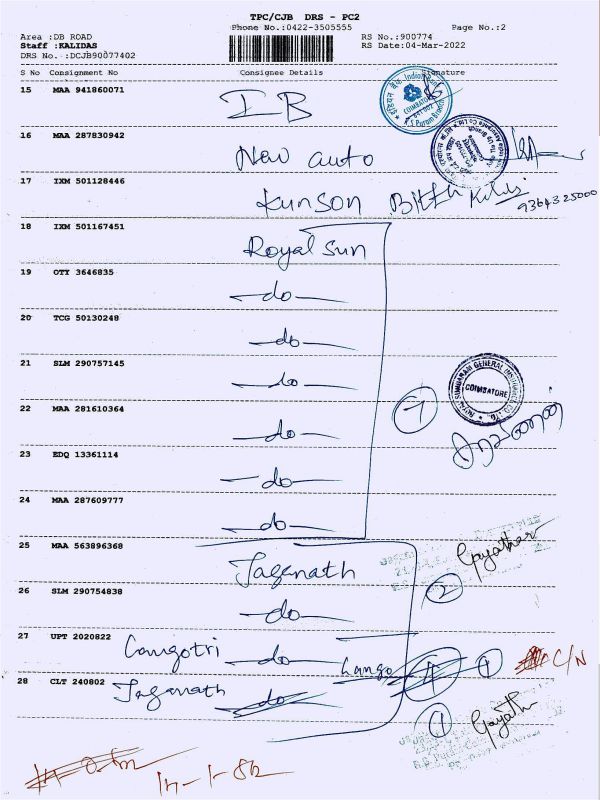 TPC/CJB DRS - PC2
Phone No.:0422-3505555 Page No.:2
Area :DB ROAD RS No.:900774
Staff :KALIDAS RS Date:04-Mar-2022
DRS No. :DCJB90077402
S No Consignment No Consignee Details Signature
15 MAA 941860071 IB
COIMBATORE
R.S.Puram Branch
16 MAA 287830942 New auto
17 IXM 501128446 Kunson
9364325000
18 IXM 501167451 Royal Sun
19 OTY 3646835 -do-
20 TCG 50130248 -do-
21 SLM 290757145 -do-
ROYAL SUNDARAM GENERAL INSURANCE CO. LTD.
COIMBATORE
22 MAA 281610364 -do-
7
23 EDQ 13361114 -do-
24 MAA 287609777 -do-
25 MAA 563896368 Jaganath
2
26 SLM 290754838 -do-
27 UPT 2020822 Gangotri -do- Gango 1 C/N
28 CLT 240802 Jaganath
1 Gayath